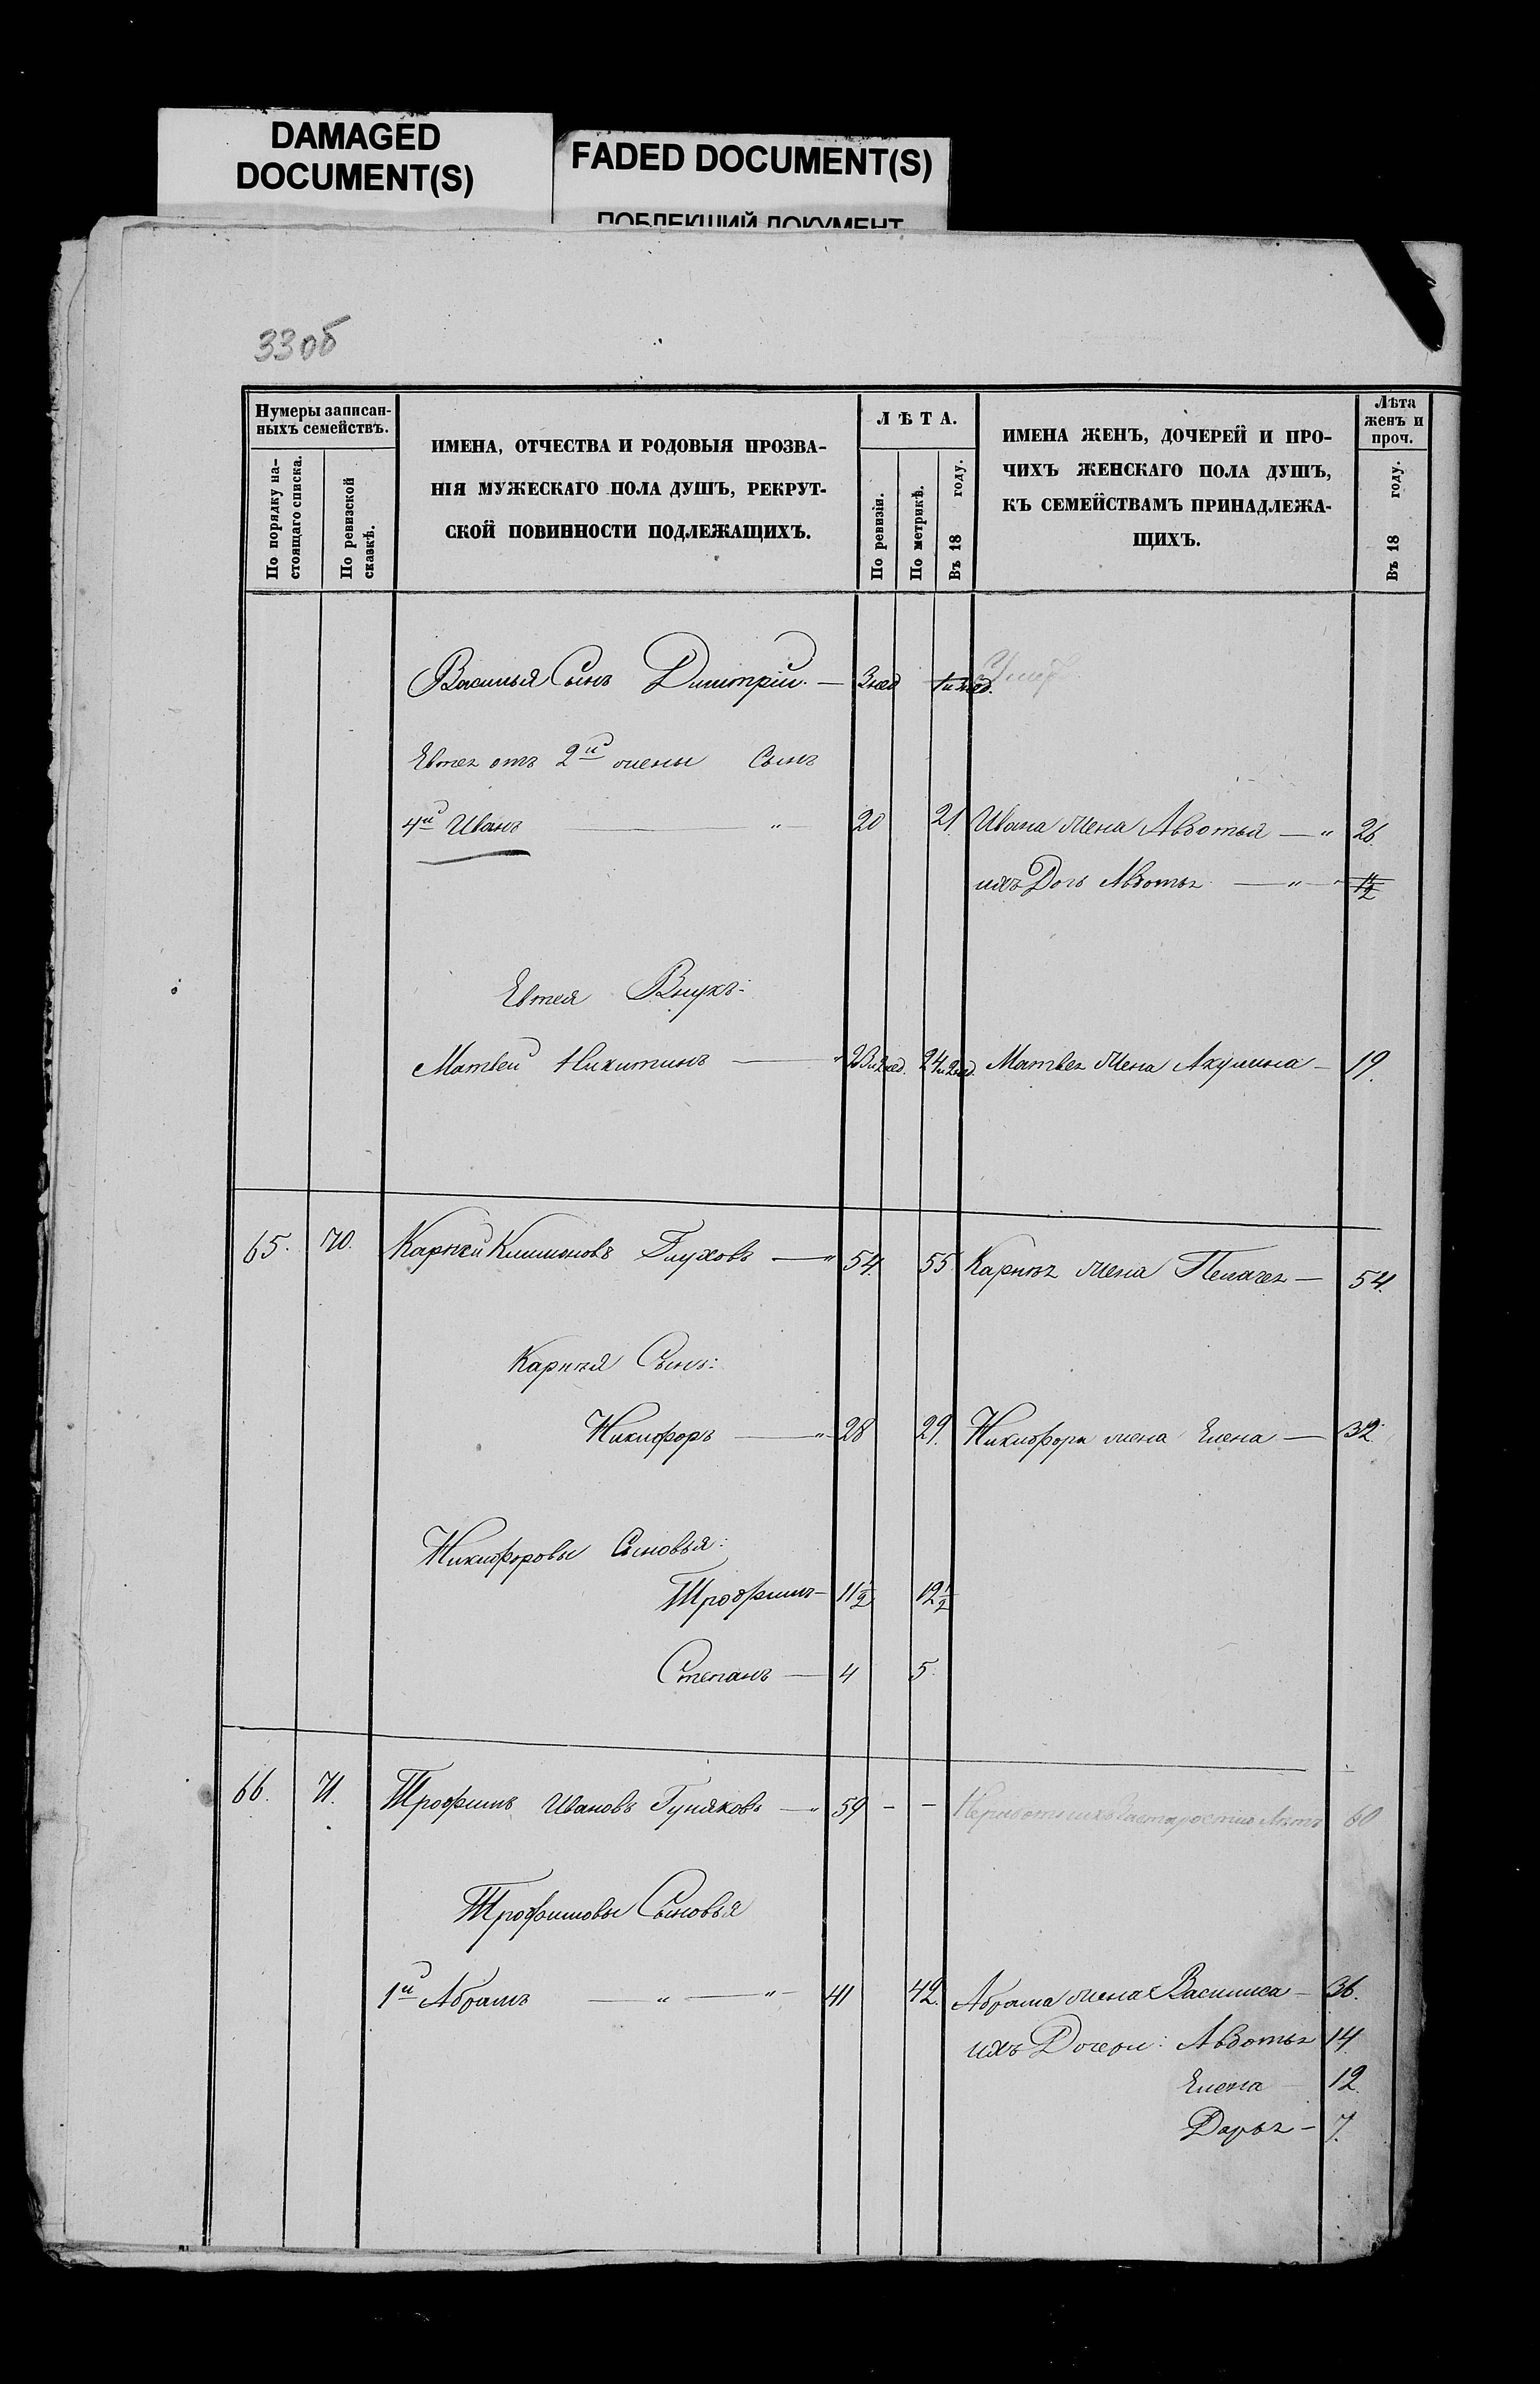 DAMAGED
DOCUMENT(S)
FADED DOCUMENT(S)
ПОБЛЕКШИЙ ДОКУМЕНТ
33об
Нумеры записан-
ныхъ семействъ.
По порядку на-
стоящаго списка.
По ревизской
сказкѣ.
ИМЕНА, ОТЧЕСТВА И РОДОВЫЯ ПРОЗВА-
НІЯ МУЖЕСКАГО ПОЛА ДУШЪ, РЕКРУТ-
СКОЙ ПОВИННОСТИ ПОДЛЕЖАЩИХЪ.
ЛѢТА.
По ревизіи.
По метрикѣ.
Въ 18 году.
ИМЕНА ЖЕНЪ, ДОЧЕРЕЙ И ПРО-
ЧИХЪ ЖЕНСКАГО ПОЛА ДУШЪ,
КЪ СЕМЕЙСТВАМЪ ПРИНАДЛЕЖА-
ЩИХЪ.
Лѣта
женъ и
проч.
Въ 18 году.
Василья Сынъ Димитрій. — 3 нед
Евтея отъ 2й жены Сынъ
4й Иванъ — " — 20 21 Ивана Жена Авдотья — " 26
ихъ Дочь Авдотья — " — 1/2
Евтея Внукъ:
Матвей Никитинъ — " 23 и 2 нед. 24 и 2 нед. Матвея Жена Акулина — 19.
65. 70. Карнѣй Климановъ Глуховъ — " 54. 55. Карнѣя жена Пелагея — 54.
Карнѣя Сынъ:
Никифоръ — " 28 29. Никифора жена Елена — 32.
Никифоровы Сыновья:
Трофимъ — 11 1/2 12 1/2
Степанъ — 4 5.
66. 71. Трофимъ Ивановъ Гуняковъ — " 59 — — 60
Трофимовы Сыновья
1й Абрамъ — " — " — 41 42. Абрама жена Василиса — 36.
ихъ Дочери: Авдотья 14.
Елена — 12.
Дарья — 7.